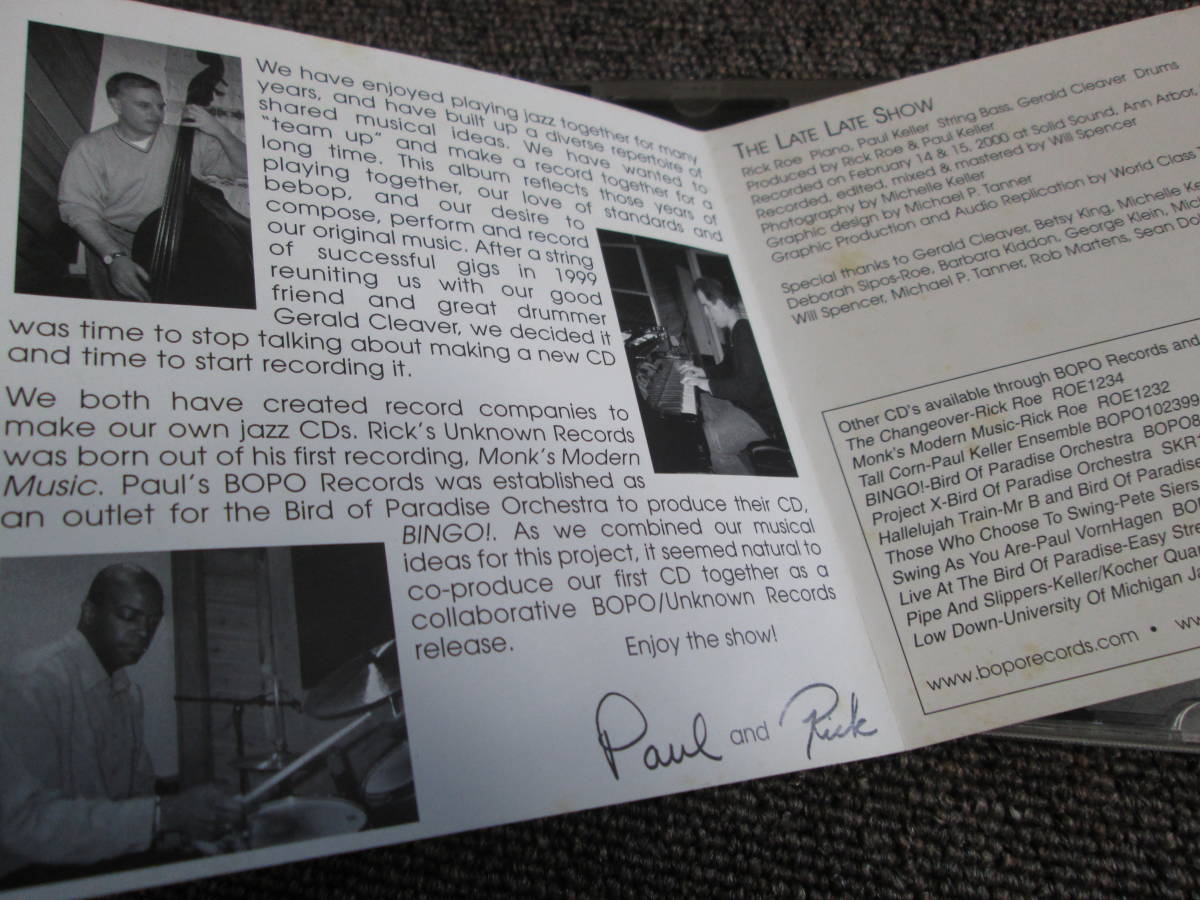 We have enjoyed playing jazz together for many
years, and have built up a diverse repertoire of
shared musical ideas. We have wanted to
"team up" and make a record together for a
long time. This album reflects those years of
playing together, our love of standards and
bebop, and our desire to
compose, perform and record
our original music. After a string
of successful gigs in 1999
reuniting us with our good
friend and great drummer
Gerald Cleaver, we decided it
was time to stop talking about making a new CD
and time to start recording it.
We both have created record companies to
make our own jazz CDs. Rick's Unknown Records
was born out of his first recording, Monk's Modern
Music. Paul's BOPO Records was established as
an outlet for the Bird of Paradise Orchestra to produce their CD,
BINGO!. As we combined our musical
ideas for this project, it seemed natural to
co-produce our first CD together as a
collaborative BOPO/Unknown Records
release.
Enjoy the show!
Paul and Rick
THE LATE LATE SHOW
Rick Roe Piano, Paul Keller String Bass, Gerald Cleaver Drums
Produced by Rick Roe & Paul Keller
Recorded on February 14 & 15, 2000 at Solid Sound, Ann Arbor,
Recorded, edited, mixed & mastered by Will Spencer
Photography by Michelle Keller
Graphic design by Michael P. Tanner
Graphic Production and Audio Replication by World Class
Special thanks to Gerald Cleaver, Betsy King, Michelle
Deborah Sipos-Roe, Barbara Kiddon, George Klein,
Will Spencer, Michael P. Tanner, Rob Martens, Sean
Other CD's available through BOPO Records and
The Changeover-Rick Roe ROE1234
Monk's Modern Music-Rick Roe ROE1232
Tall Corn-Paul Keller Ensemble BOPO102399
BINGO!-Bird Of Paradise Orchestra
Project X-Bird Of Paradise Orchestra SKR
Hallelujah Train-Mr B and Bird Of Paradise
Those Who Choose To Swing-Pete Siers
Swing As You Are-Paul VornHagen
Live At The Bird Of Paradise-Easy
Pipe And Slippers-Keller/Kocher
Low Down-University Of Michigan
www.boporecords.com •